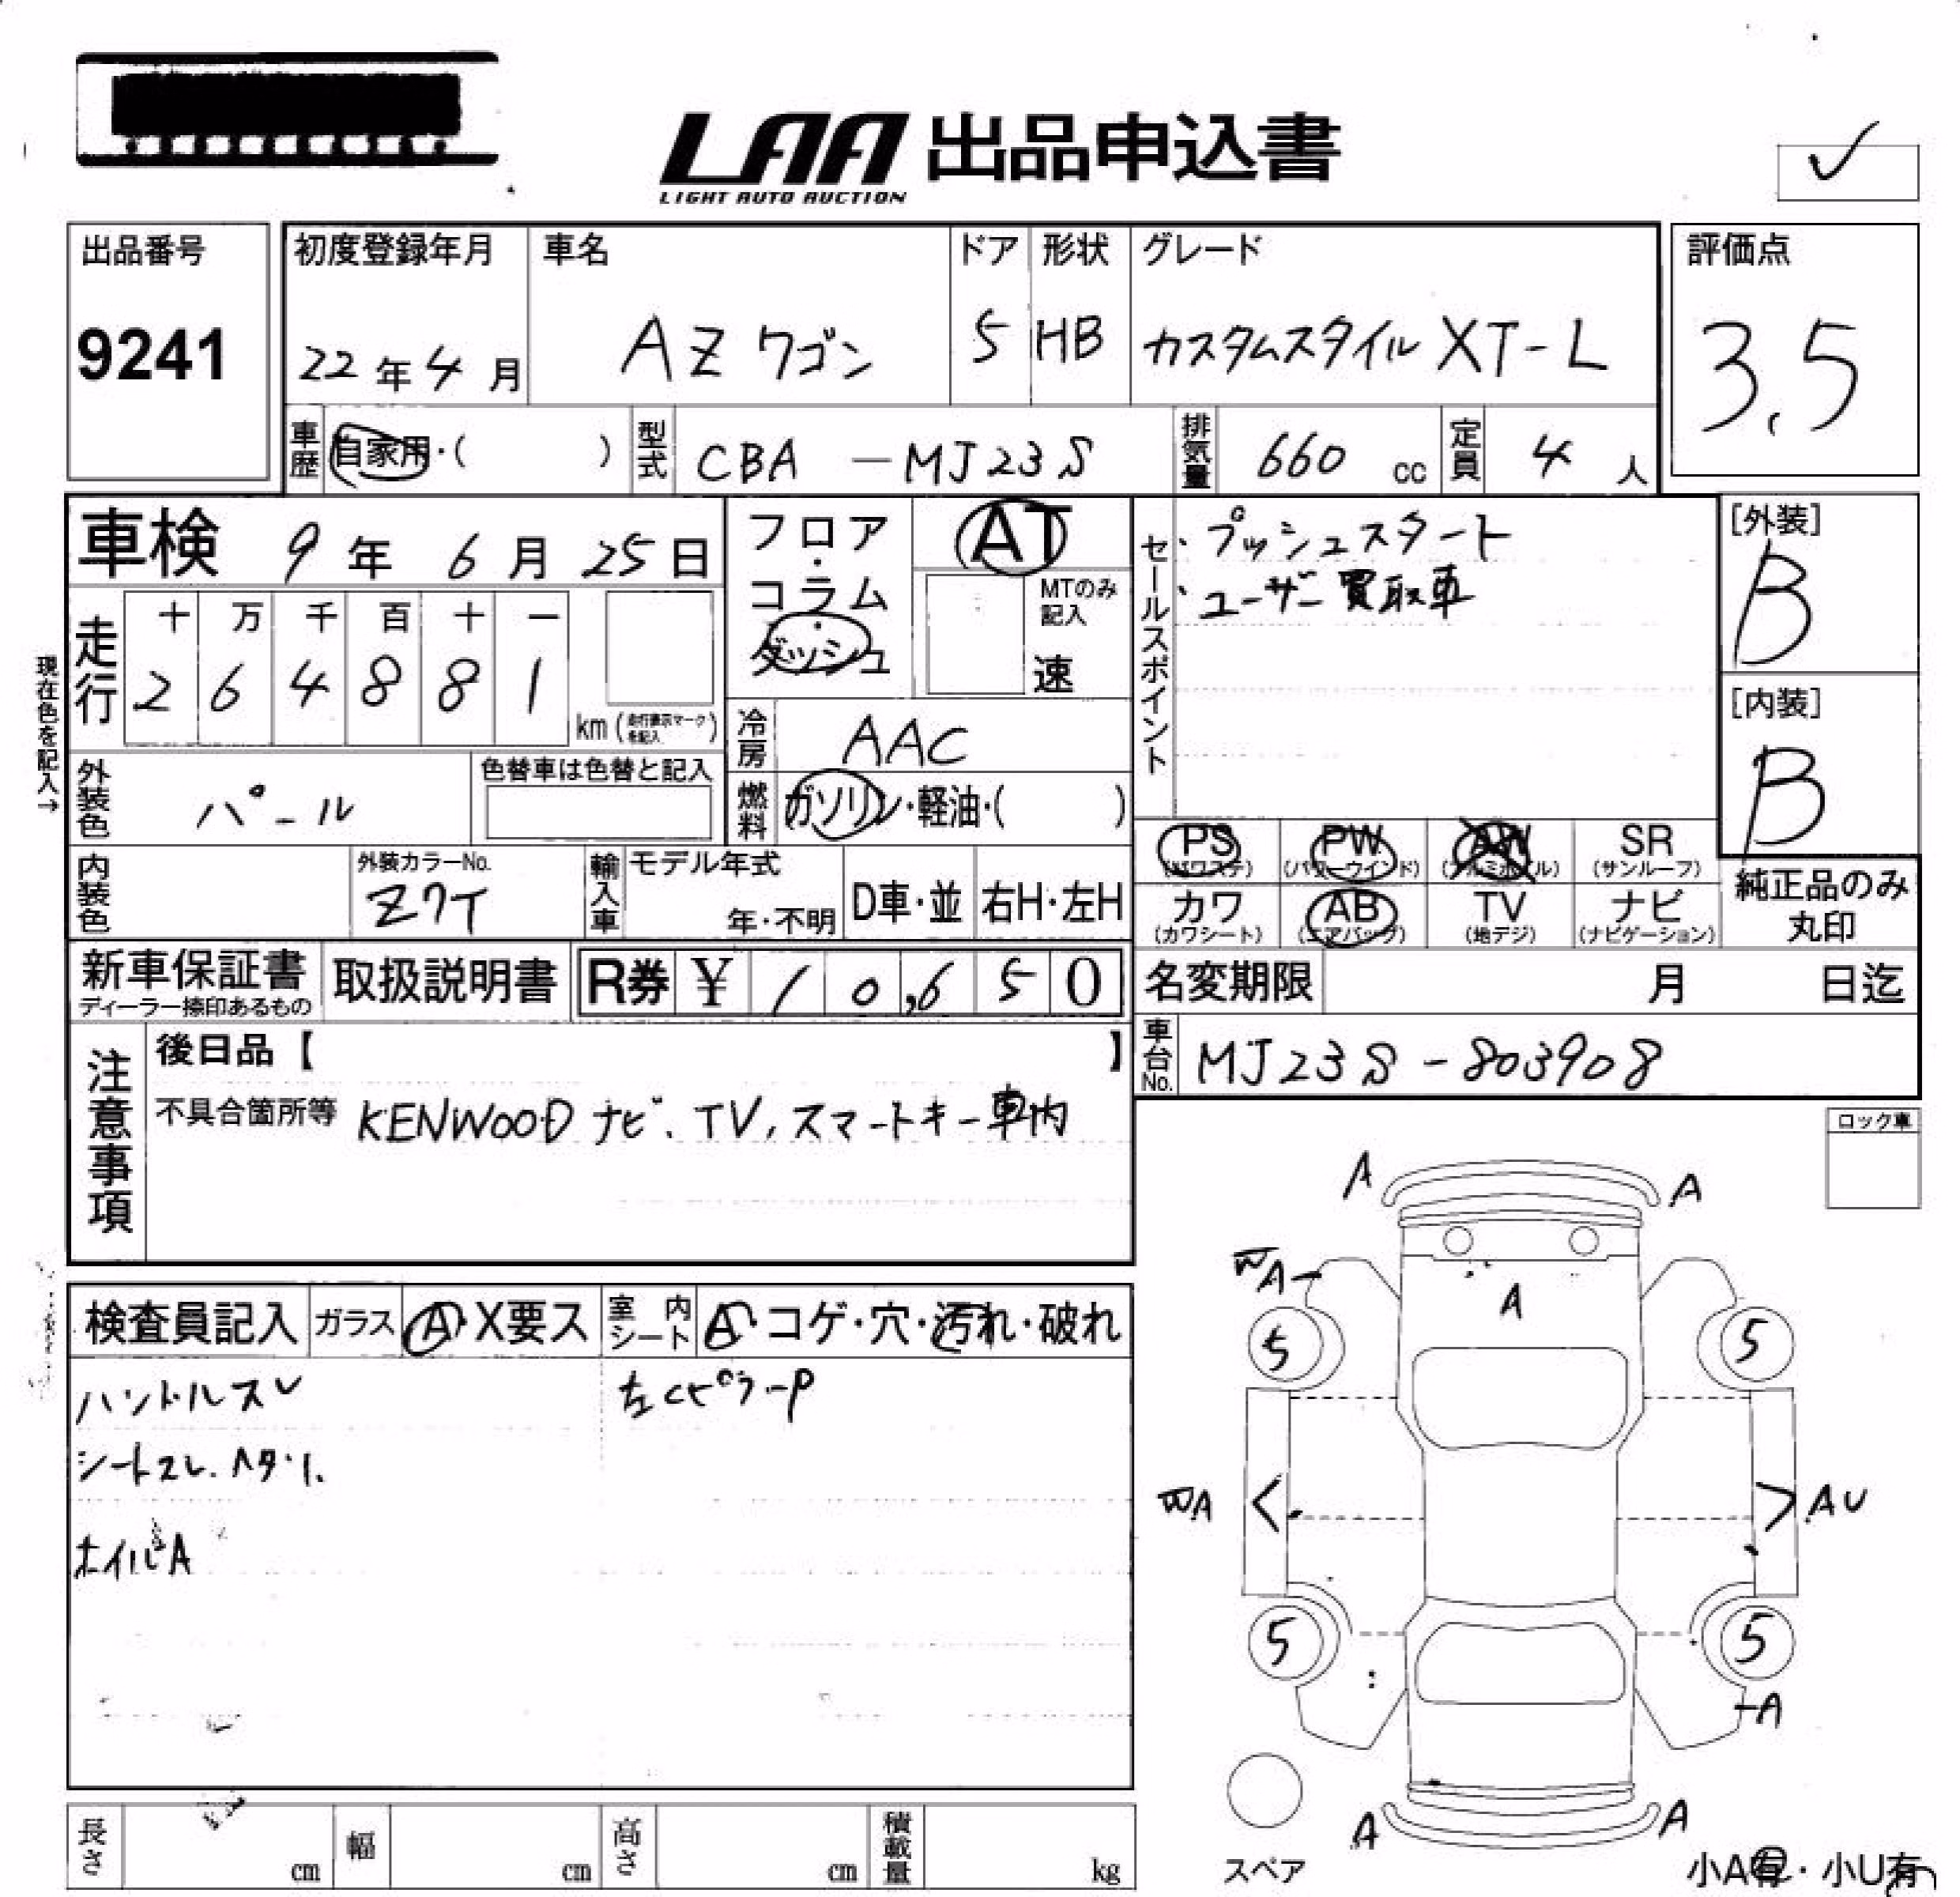 LAA 出品申込書
LIGHT AUTO AUCTION
出品番号
9241
初度登録年月
22年4月
車名
AZワゴン
ドア
5
形状
HB
グレード
カスタムスタイル XT-L
評価点
3.5
車歴
自家用・( )
型式
CBA -MJ23S
排気量
660 cc
定員
4 人
車検 9年 6月 25日
走行
十 万 千 百 十 一
2 6 4 8 8 1
km (走行表示マークを記入)
現在色を記入→
フロア・コラム・ダッシュ
AT
MTのみ記入
速
冷房
AAC
燃料
ガソリン・軽油・( )
セールスポイント
・プッシュスタート
・ユーザー買取車
[外装]
B
[内装]
B
外装色
パール
色替車は色替と記入
内装色
外装カラーNo.
Z7T
輸入車
モデル年式
年・不明
D車・並
右H・左H
PS (パワステ)
PW (パワーウインド)
AW (アルミホイル)
SR (サンルーフ)
カワ (カワシート)
AB (エアバッグ)
TV (地デジ)
ナビ (ナビゲーション)
純正品のみ
丸印
新車保証書
ディーラー捺印あるもの
取扱説明書
R券 ¥ 10,650
名変期限 月 日迄
車台No.
MJ23S-803908
注意事項
後日品【 】
不具合箇所等 KENWOODナビ、TV,スマートキー車内
ロック車
検査員記入
ガラス
A・X要ス
室内シート
A・コゲ・穴・汚れ・破れ
ハンドルスレ
左CピラーP
シートスレ.ヘタリ.
ホイルA
A A
A
A
5 5
A
AU
5 5
A
A A
スペア
小A有・小U有
長さ cm
幅 cm
高さ cm
積載量 kg